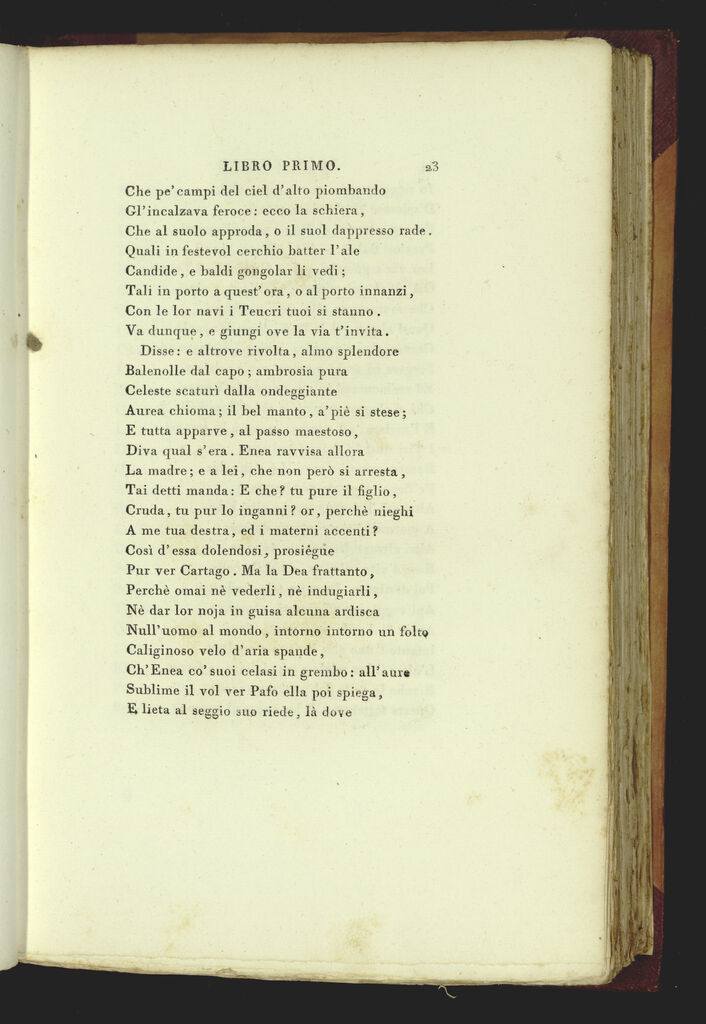 LIBRO PRIMO. 23
Che pe' campi del ciel d'alto piombando
Gl'incalzava feroce: ecco la schiera,
Che al suolo approda, o il suol dappresso rade.
Quali in festevol cerchio batter l'ale
Candide, e baldi gongolar li vedi;
Tali in porto a quest'ora, o al porto innanzi,
Con le lor navi i Teucri tuoi si stanno.
Va dunque, e giungi ove la via t'invita.
Disse: e altrove rivolta, almo splendore
Balenolle dal capo; ambrosia pura
Celeste scaturì dalla ondeggiante
Aurea chioma; il bel manto, a'piè si stese;
E tutta apparve, al passo maestoso,
Diva qual s'era. Enea ravvisa allora
La madre; e a lei, che non però si arresta,
Tai detti manda: E che? tu pure il figlio,
Cruda, tu pur lo inganni? or, perchè nieghi
A me tua destra, ed i materni accenti?
Così d'essa dolendosi, prosiégue
Pur ver Cartago. Ma la Dea frattanto,
Perchè omai nè vederli, nè indugiarli,
Nè dar lor noja in guisa alcuna ardisca
Null'uomo al mondo, intorno intorno un folto
Caliginoso velo d'aria spande,
Ch'Enea co' suoi celasi in grembo: all'aure
Sublime il vol ver Pafo ella poi spiega,
E lieta al seggio suo riede, là dove